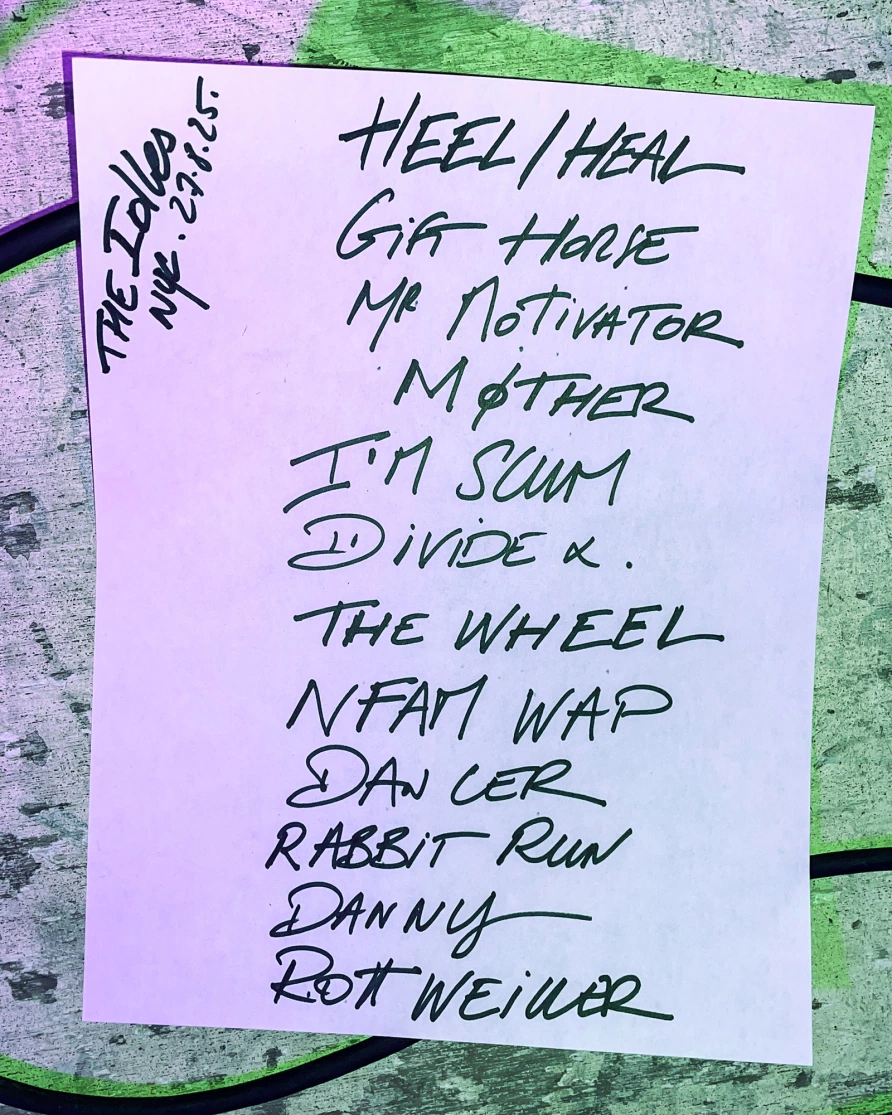 THE Idles
NYC. 27.8.25.
HEEL/HEAL
GiFT HORSE
MR MOTiVATOR
MØTHER
I'M SCUM
DiViDE & .
THE WHEEL
NFAM WAP
DANCER
RABBiT RUN
DANNY
ROTTWEiLLER